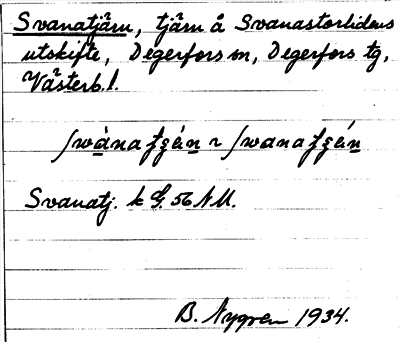 Svanatjärn, tjärn å Svanastorlidens
utskifte, Degerfors sn, Degerfors tg,
Västerb. l.
Svanatj. k G. 56 NU.
B. Nygren 1934.